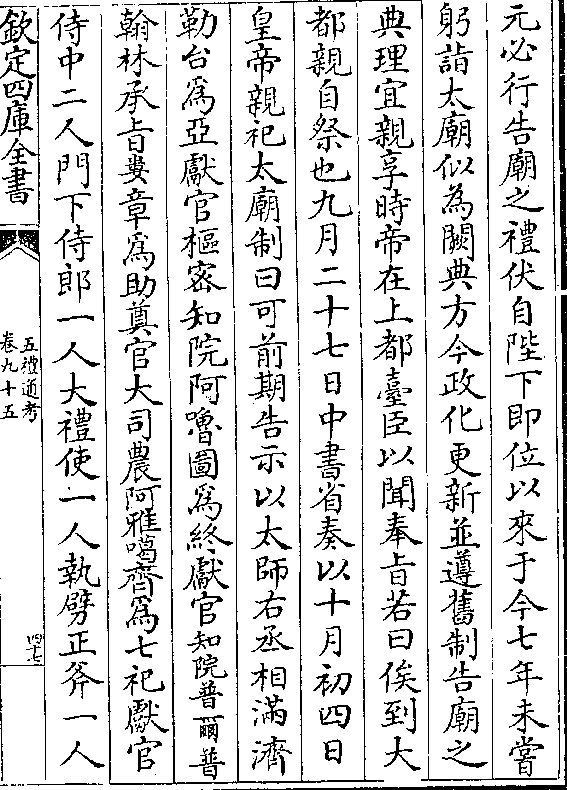 元必行告廟之禮伏自陛下即位以來于今七年未嘗
躬詣太廟似為闕典方今政化更新並遵舊制告廟之
典理宜親享時帝在上都臺臣以聞奉旨若曰俟到大
都親自祭也九月二十七日中書省奏以十月初四日
皇帝親祀太廟制曰可前期告示以太師右丞相滿濟
勒台為亞獻官樞密知院阿嚕圖為終獻官知院普爾普
翰林承旨婁章為助奠官大司農阿雅噶齊為七祀獻官
侍中二人門下侍郎一人大禮使一人執劈正斧一人
欽定四庫全書
五禮通考
卷九十五
四七